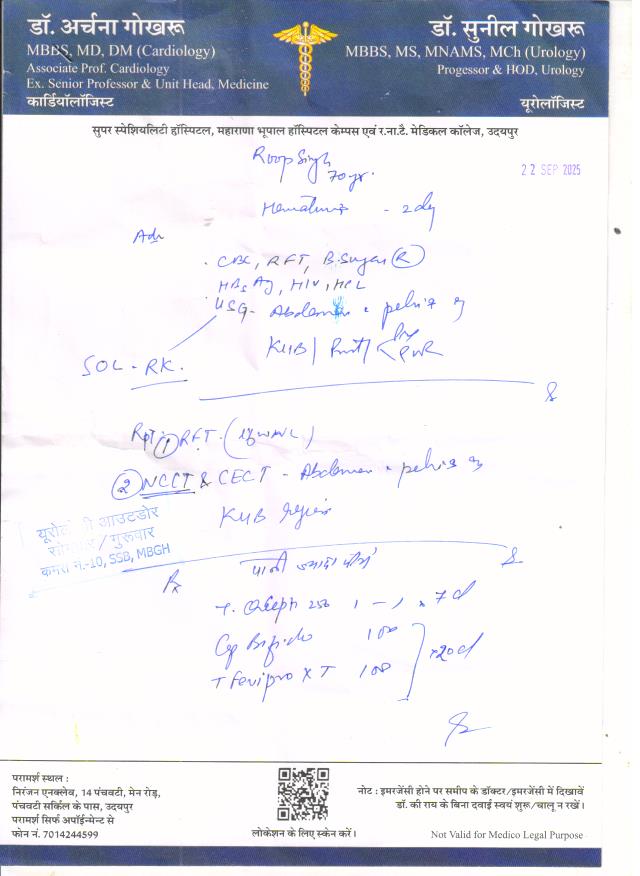 डॉ. अर्चना गोखरू
MBBS, MD, DM (Cardiology)
Associate Prof. Cardiology
Ex. Senior Professor & Unit Head, Medicine
कार्डियॉलॉजिस्ट
डॉ. सुनील गोखरू
MBBS, MS, MNAMS, MCh (Urology)
Progessor & HOD, Urology
यूरोलॉजिस्ट
सुपर स्पेशियलिटी हॉस्पिटल, महाराणा भूपाल हॉस्पिटल केम्पस एवं र.ना.टै. मेडिकल कॉलेज, उदयपुर
Roop Singh
70 yr.
22 SEP 2025
Hematuria - 2 day
Adv
CBC, RFT, B.Sugar (R)
HBsAg, HIV, HCV
USG - Abdomen & pelvis
KUB / Prost / PVR
SOL - RK.
Rpt ① RFT.
② NCCT & CECT - Abdomen & pelvis
KUB region
यूरोलॉजी आउटडोर
सोमवार/गुरूवार
कमरा नं.-10, SSB, MBGH
पानी ज्यादा पीयें
Rx
250 1 - 1 x 7 d
Cap 100
x 20 d
T Feripro XT 100
परामर्श स्थल :
निरंजन एनक्लेव, 14 पंचवटी, मेन रोड़,
पंचवटी सर्किल के पास, उदयपुर
परामर्श सिर्फ अपॉईन्मेन्ट से
फोन नं. 7014244599
लोकेशन के लिए स्केन करें।
नोट : इमरजेंसी होने पर समीप के डॉक्टर/इमरजेंसी में दिखावें
डॉ. की राय के बिना दवाई स्वयं शुरू/चालू न रखें।
Not Valid for Medico Legal Purpose